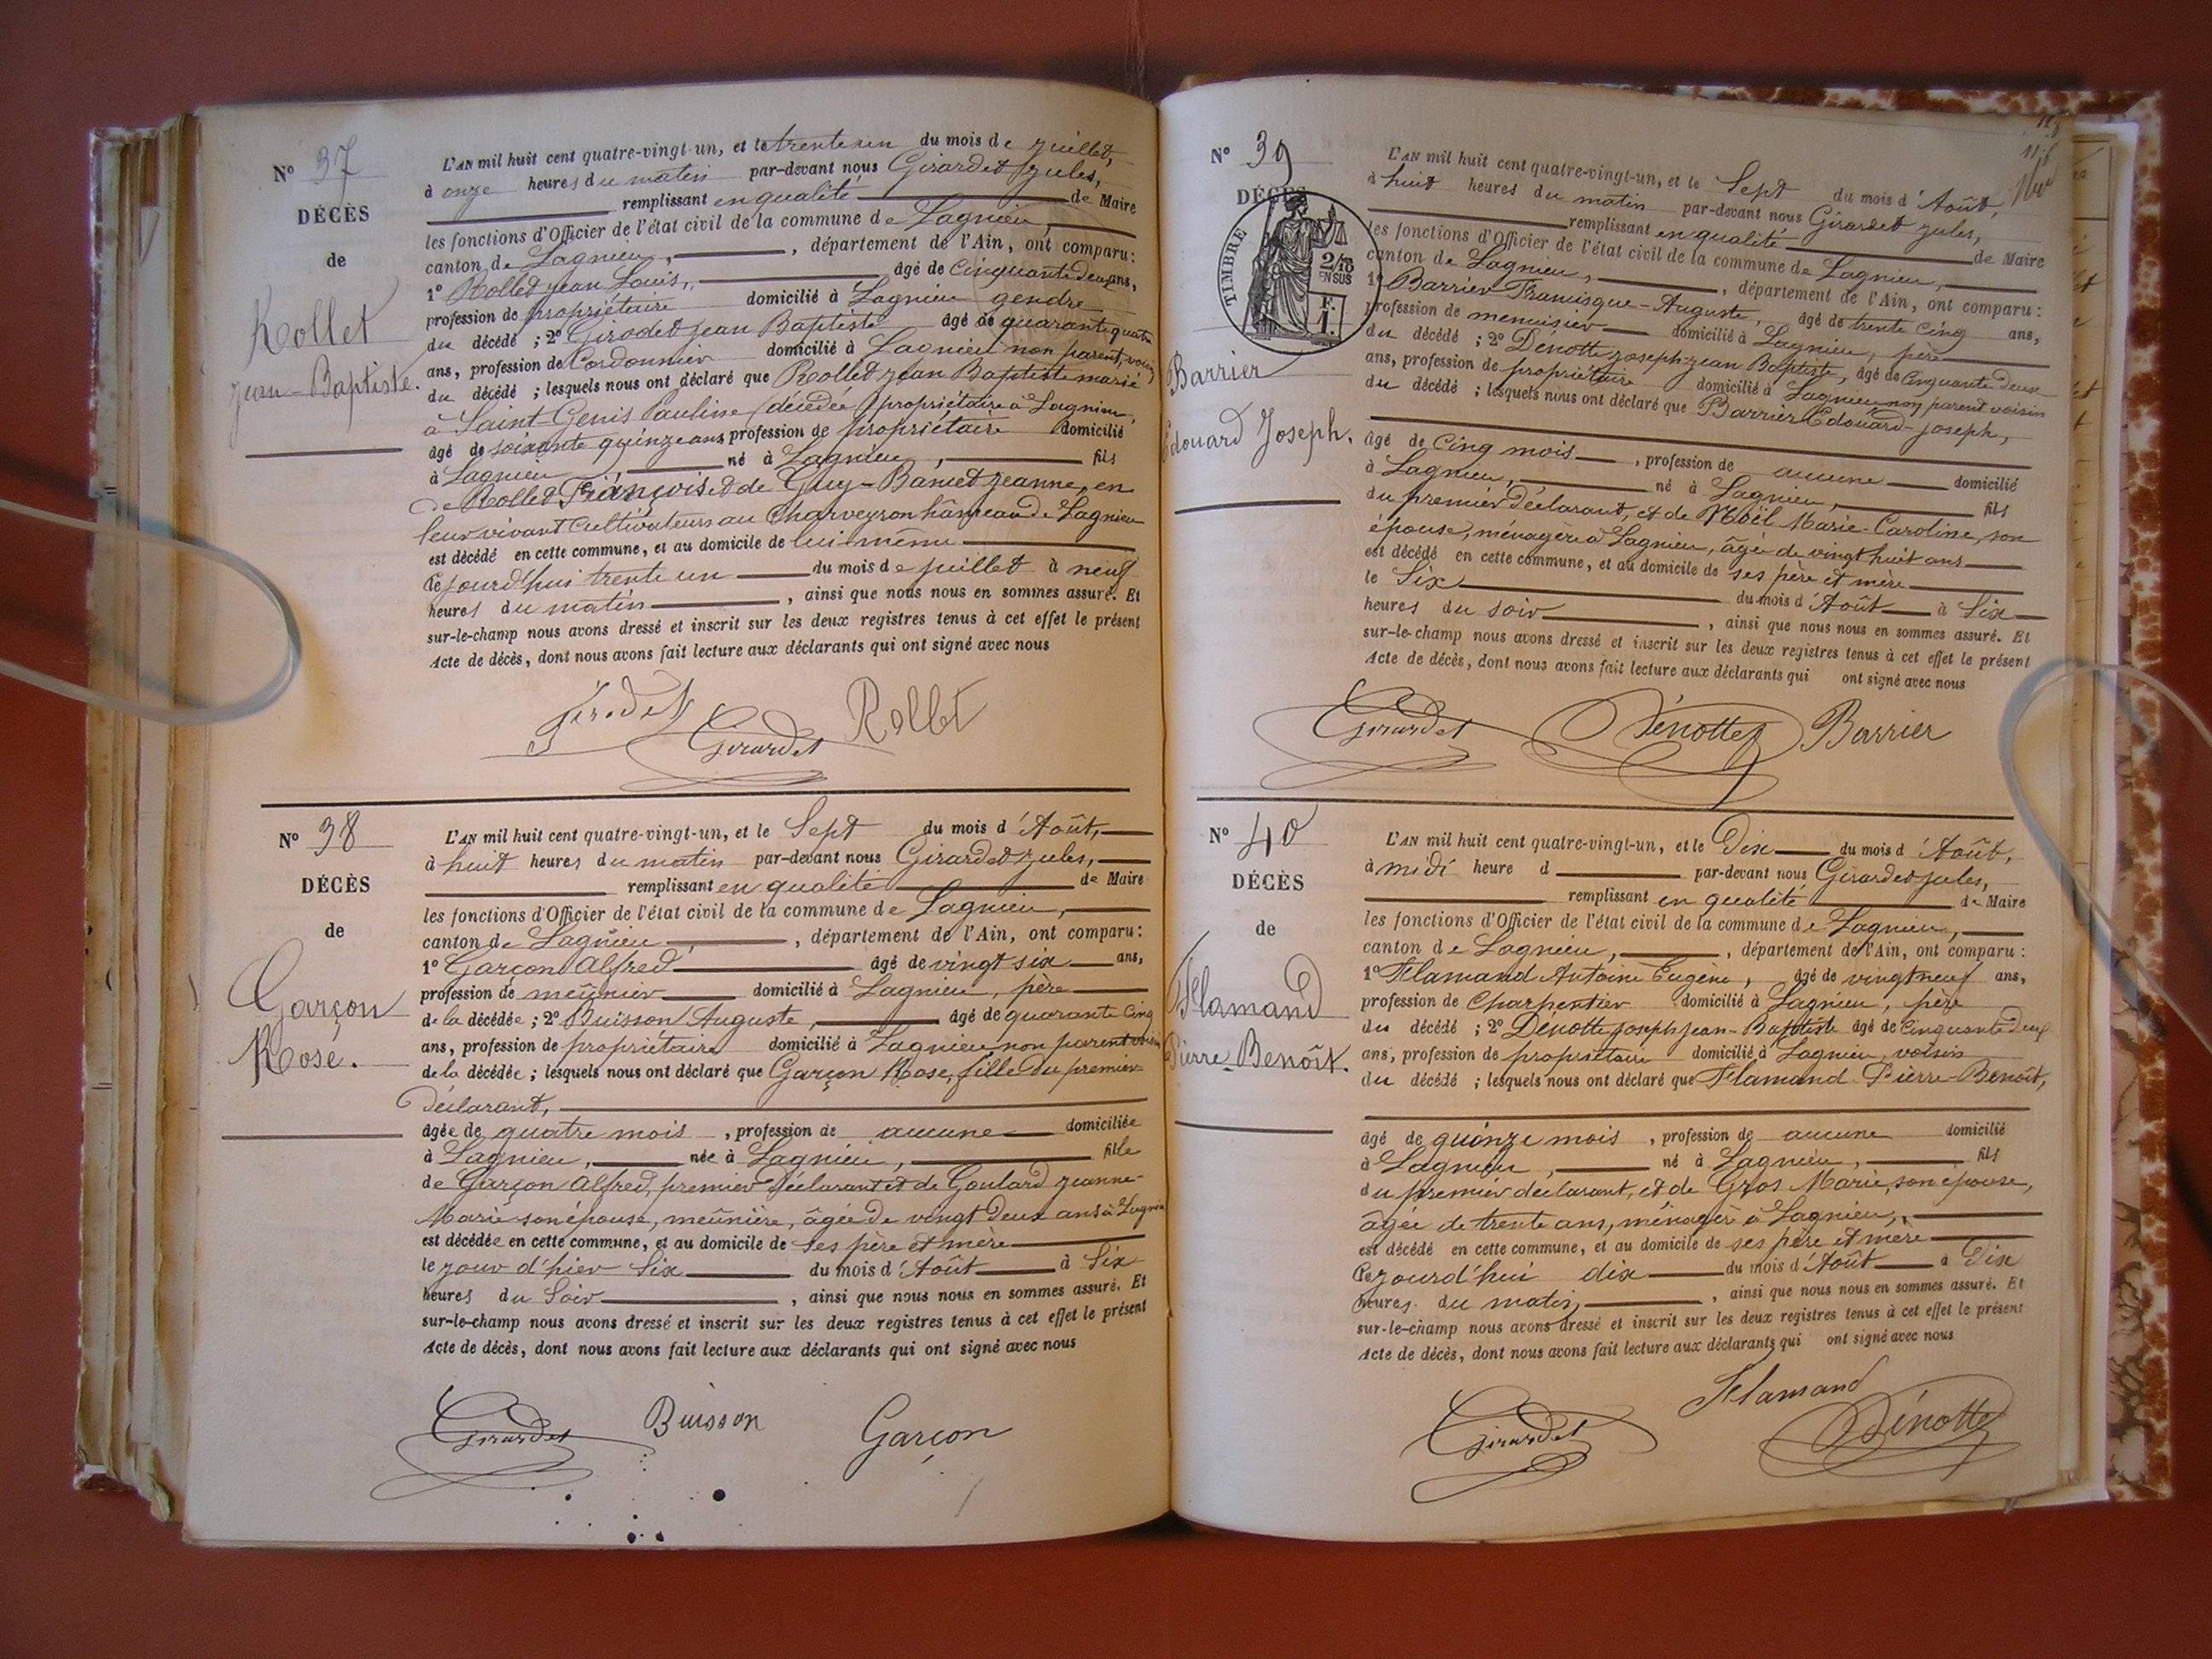 N° 37
DÉCÈS
de
Rollet
Jean-Baptiste.
L'AN mil huit cent quatre-vingt-un, et le trente un du mois de juillet,
à onze heures du matin par-devant nous Girardet Jules,
remplissant en qualité de Maire
les fonctions d'Officier de l'état civil de la commune de Lagnieu,
canton de Lagnieu, département de l'Ain, ont comparu:
1° Rollet Jean Louis, âgé de Cinquante deux ans,
profession de propriétaire domicilié à Lagnieu gendre
du décédé ; 2° Girodet Jean Baptiste âgé de quarante quatre
ans, profession de Cordonnier domicilié à Lagnieu non parent, voisin
du décédé ; lesquels nous ont déclaré que Rollet Jean Baptiste marié
à Saint-Genis Pauline (décédée) propriétaire à Lagnieu,
âgé de soixante quinze ans profession de propriétaire domicilié
à Lagnieu, né à Lagnieu, fils
de Rollet François et de Guy-Banet Jeanne, en
leur vivant Cultivateurs au Charveyron hâmeau de Lagnieu
est décédé en cette commune, et au domicile de lui-même
Cejourd'hui trente un du mois de juillet à neuf
heures du matin, ainsi que nous nous en sommes assuré. Et
sur-le-champ nous avons dressé et inscrit sur les deux registres tenus à cet effet le présent
Acte de décès, dont nous avons fait lecture aux déclarants qui ont signé avec nous
Girodet Girardet Rollet
N° 38
DÉCÈS
de
Garçon
Rose.
L'AN mil huit cent quatre-vingt-un, et le Sept du mois d'Août,
à huit heures du matin par-devant nous Girardet Jules,
remplissant en qualité de Maire
les fonctions d'Officier de l'état civil de la commune de Lagnieu,
canton de Lagnieu, département de l'Ain, ont comparu:
1° Garçon Alfred âgé de vingt six ans,
profession de meûnier domicilié à Lagnieu, père
de la décédée ; 2° Buisson Auguste, âgé de quarante Cinq
ans, profession de propriétaire domicilié à Lagnieu non parent voisin
de la décédée ; lesquels nous ont déclaré que Garçon Rose, fille du premier
Déclarant,
âgée de quatre mois, profession de aucune domiciliée
à Lagnieu, née à Lagnieu, fille
de Garçon Alfred, premier déclarant et de Goulard Jeanne-
Marie son épouse, meûnière, âgée de vingt deux ans à Lagnieu
est décédée en cette commune, et au domicile de ses père et mère
le jour d'hier Six du mois d'Août à Six
heures du Soir, ainsi que nous nous en sommes assuré. Et
sur-le-champ nous avons dressé et inscrit sur les deux registres tenus à cet effet le présent
Acte de décès, dont nous avons fait lecture aux déclarants qui ont signé avec nous
Girardet Buisson Garçon
N° 39
DÉCÈS
TIMBRE
2/10
EN SUS
Barrier
Édouard Joseph.
L'AN mil huit cent quatre-vingt-un, et le Sept du mois d'Août,
à huit heures du matin par-devant nous Girardet Jules,
remplissant en qualité de Maire
les fonctions d'Officier de l'état civil de la commune de Lagnieu,
canton de Lagnieu, département de l'Ain, ont comparu:
1° Barrier Francisque-Auguste, âgé de trente Cinq ans,
profession de menuisier domicilié à Lagnieu, père
du décédé ; 2° Denotte Joseph-Jean Baptiste, âgé de Cinquante deux
ans, profession de propriétaire domicilié à Lagnieu non parent voisin
du décédé ; lesquels nous ont déclaré que Barrier Edouard-Joseph,
âgé de Cinq mois, profession de aucune domicilié
à Lagnieu, né à Lagnieu, fils
du premier Déclarant, et de Noël Marie-Caroline, son
épouse, ménagère à Lagnieu, âgée de vingt huit ans
est décédé en cette commune, et au domicile de ses père et mère
le Six du mois d'Août à Six
heures du soir, ainsi que nous nous en sommes assuré. Et
sur-le-champ nous avons dressé et inscrit sur les deux registres tenus à cet effet le présent
Acte de décès, dont nous avons fait lecture aux déclarants qui ont signé avec nous
Girardet Dénotte Barrier
N° 40
DÉCÈS
de
Flamand
Pierre-Benoît.
L'AN mil huit cent quatre-vingt-un, et le Dix du mois d'Août,
à midi heure d par-devant nous Girardet Jules,
remplissant en qualité de Maire
les fonctions d'Officier de l'état civil de la commune de Lagnieu,
canton de Lagnieu, département de l'Ain, ont comparu:
1° Flamand Antoine Eugène, âgé de vingt neuf ans,
profession de Charpentier domicilié à Lagnieu, père
du décédé ; 2° Denotte Joseph Jean-Baptiste âgé de Cinquante deux
ans, profession de propriétaire domicilié à Lagnieu, voisin
du décédé ; lesquels nous ont déclaré que Flamand Pierre-Benoît,
âgé de quinze mois, profession de aucune domicilié
à Lagnieu, né à Lagnieu, fils
du premier déclarant, et de Gros Marie, son épouse,
âgée de trente ans, ménagère à Lagnieu,
est décédé en cette commune, et au domicile de ses père et mère
Cejourd'hui dix du mois d'Août à Dix
heures du matin, ainsi que nous nous en sommes assuré. Et
sur-le-champ nous avons dressé et inscrit sur les deux registres tenus à cet effet le présent
Acte de décès, dont nous avons fait lecture aux déclarants qui ont signé avec nous
Flamand
Girardet Dénotte